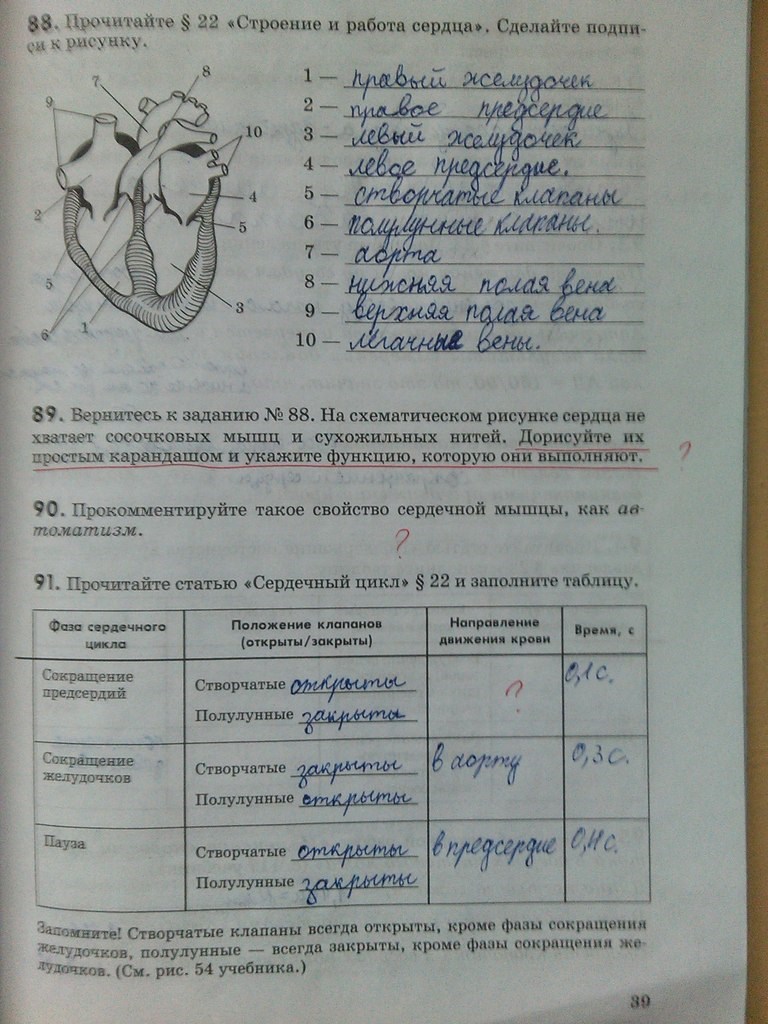 88. Прочитайте § 22 «Строение и работа сердца». Сделайте подпи-
си к рисунку.
1 — правый желудочек
2 — правое предсердие
3 — левый желудочек
4 — левое предсердие.
5 — створчатые клапаны
6 — полулунные клапаны.
7 — аорта
8 — нижняя полая вена
9 — верхняя полая вена
10 — лёгачные вены.
7
8
9
10
2
4
5
5
3
6
1
89. Вернитесь к заданию № 88. На схематическом рисунке сердца не
хватает сосочковых мышц и сухожильных нитей. Дорисуйте их
простым карандашом и укажите функцию, которую они выполняют. ?
90. Прокомментируйте такое свойство сердечной мышцы, как ав-
томатизм.
?
91. Прочитайте статью «Сердечный цикл» § 22 и заполните таблицу.
Фаза сердечного цикла | Положение клапанов (открыты/закрыты) | Направление движения крови | Время, с
Сокращение предсердий | Створчатые открыты | ? | 0,1 с.
Полулунные закрыты
Сокращение желудочков | Створчатые закрыты | в аорту | 0,3 с.
Полулунные открыты
Пауза | Створчатые открыты | в предсердие | 0,4 с.
Полулунные закрыты
Запомните! Створчатые клапаны всегда открыты, кроме фазы сокращения
желудочков, полулунные — всегда закрыты, кроме фазы сокращения же-
лудочков. (См. рис. 54 учебника.)
39